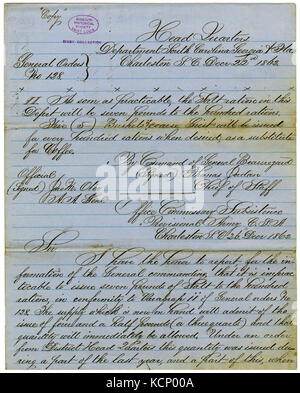 "Copy"
MISSOURI
HISTORICAL
SOCIETY
SAINT LOUIS
Head Quarters
Department South Carolina Georgia & Fla
General Orders
Charleston S. C. Decr 22nd 1862
No 128.
II. As soon as practicable, the Salt ration in this
Dept will be seven pounds to the hundred rations.
Five (5) Bushels Cowpeas will be issued
for every hundred rations when desired, as a substitute
for Coffee.
By Command of General Beauregard
Official (Signed) Thomas Jordan
(Signed) Jno M. Otey Chief of Staff
A. A. Genl.
Office Commissary Subsistence
Provisional Army C. S. A.
Charleston S. C. 26 Decr 1862
Sir
I have the honor to report for the in-
formation of the General commanding, that it is imprac-
ticable to issue seven pounds of Salt to the hundred
rations, in conformity to Paragraph II of General orders No
128. The supply which is now on hand will admit of the
issue of four and a half pounds (or three quarts) and that
quantity will immediately be allowed. Under an order
from District Head Quarters this quantity was issued du-
ring a part of the last year, and a part of this, when
alamy
Image ID: KCP00A
www.alamy.com